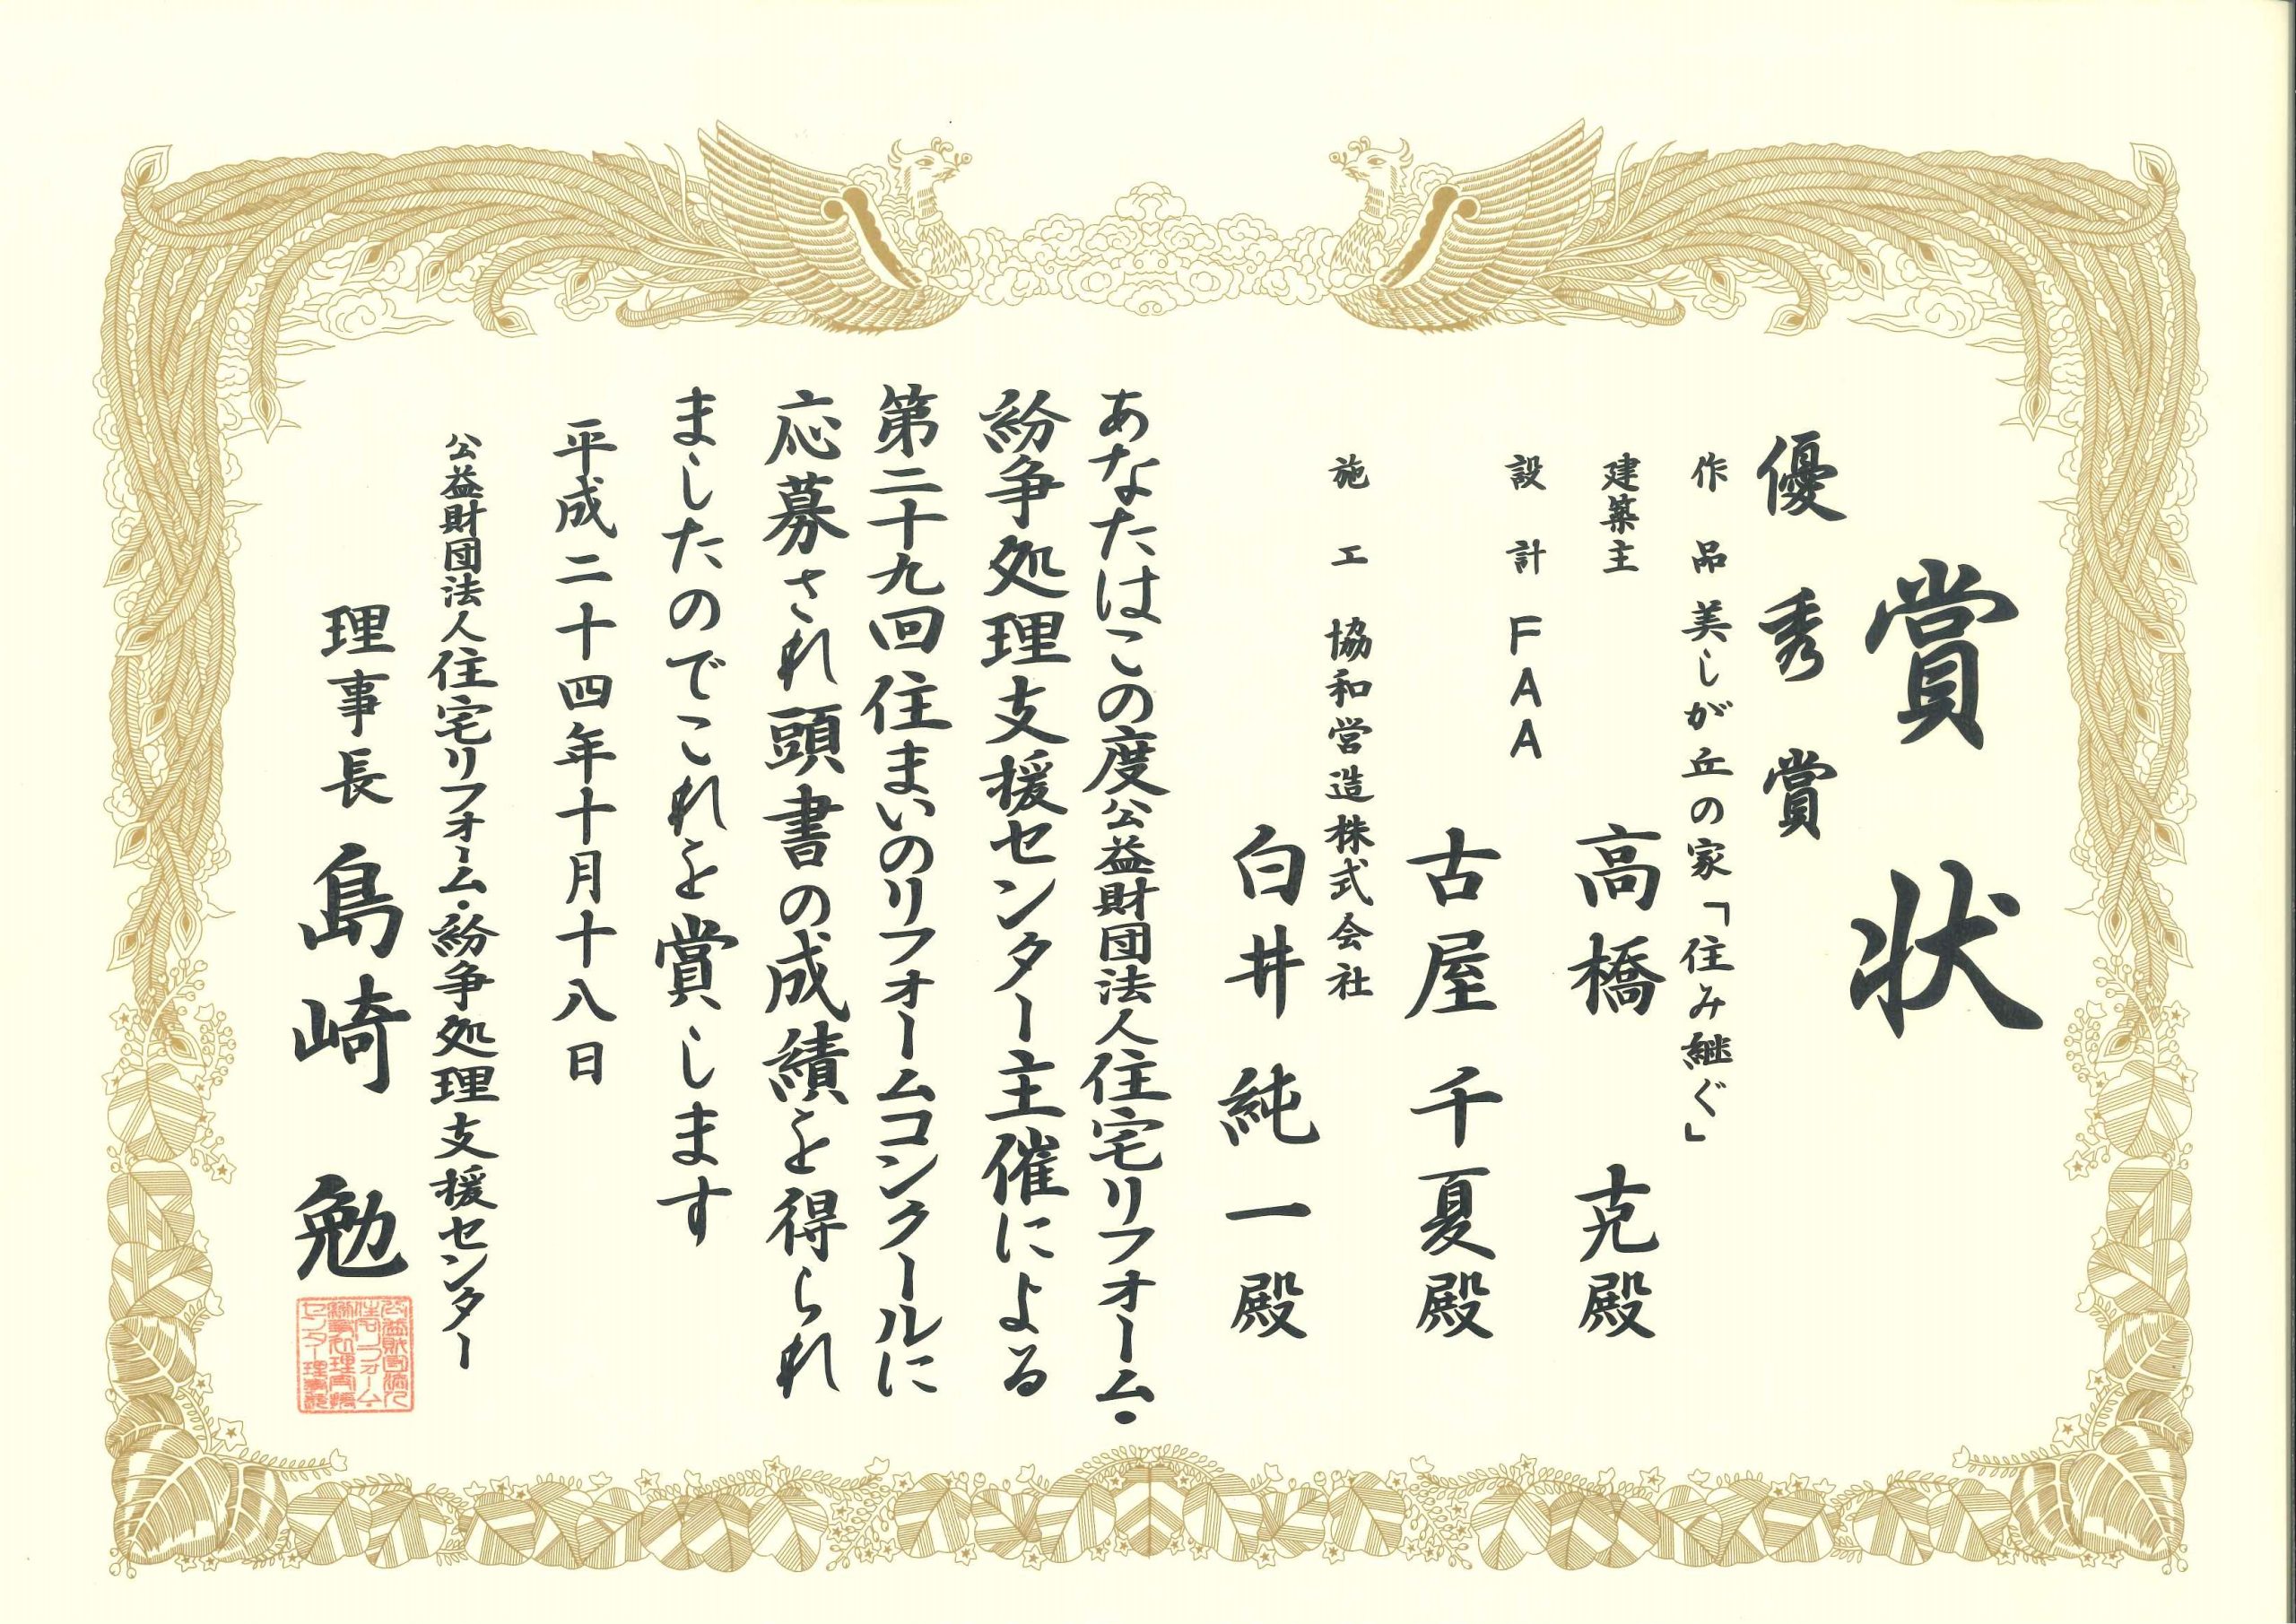 賞状
優秀賞
作品 美しが丘の家「住み継ぐ」
建築主 高橋 克殿
設計 FAA 古屋 千夏殿
施工 協和営造株式会社
白井 純一殿
あなたはこの度公益財団法人住宅リフォーム・
紛争処理支援センター主催による
第二十九回住まいのリフォームコンクールに
応募され頭書の成績を得られ
ましたのでこれを賞します
平成二十四年十月十八日
公益財団法人住宅リフォーム・紛争処理支援センター
理事長 島崎 勉
公益財団法人
住宅リフォーム・
紛争処理支援
センター理事長